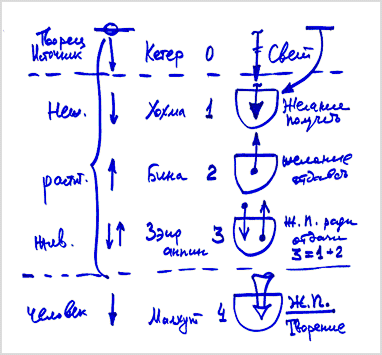 Творец
Источник
Кетер 0
Свет
Неж.
Хохма 1
Желание
получить
раст.
Бина 2
желание
отдавать
жив.
Зэир
анпин 3
Ж.П. ради
отдачи
3=1+2
Человек
Малкут 4
Ж.П.
Творение